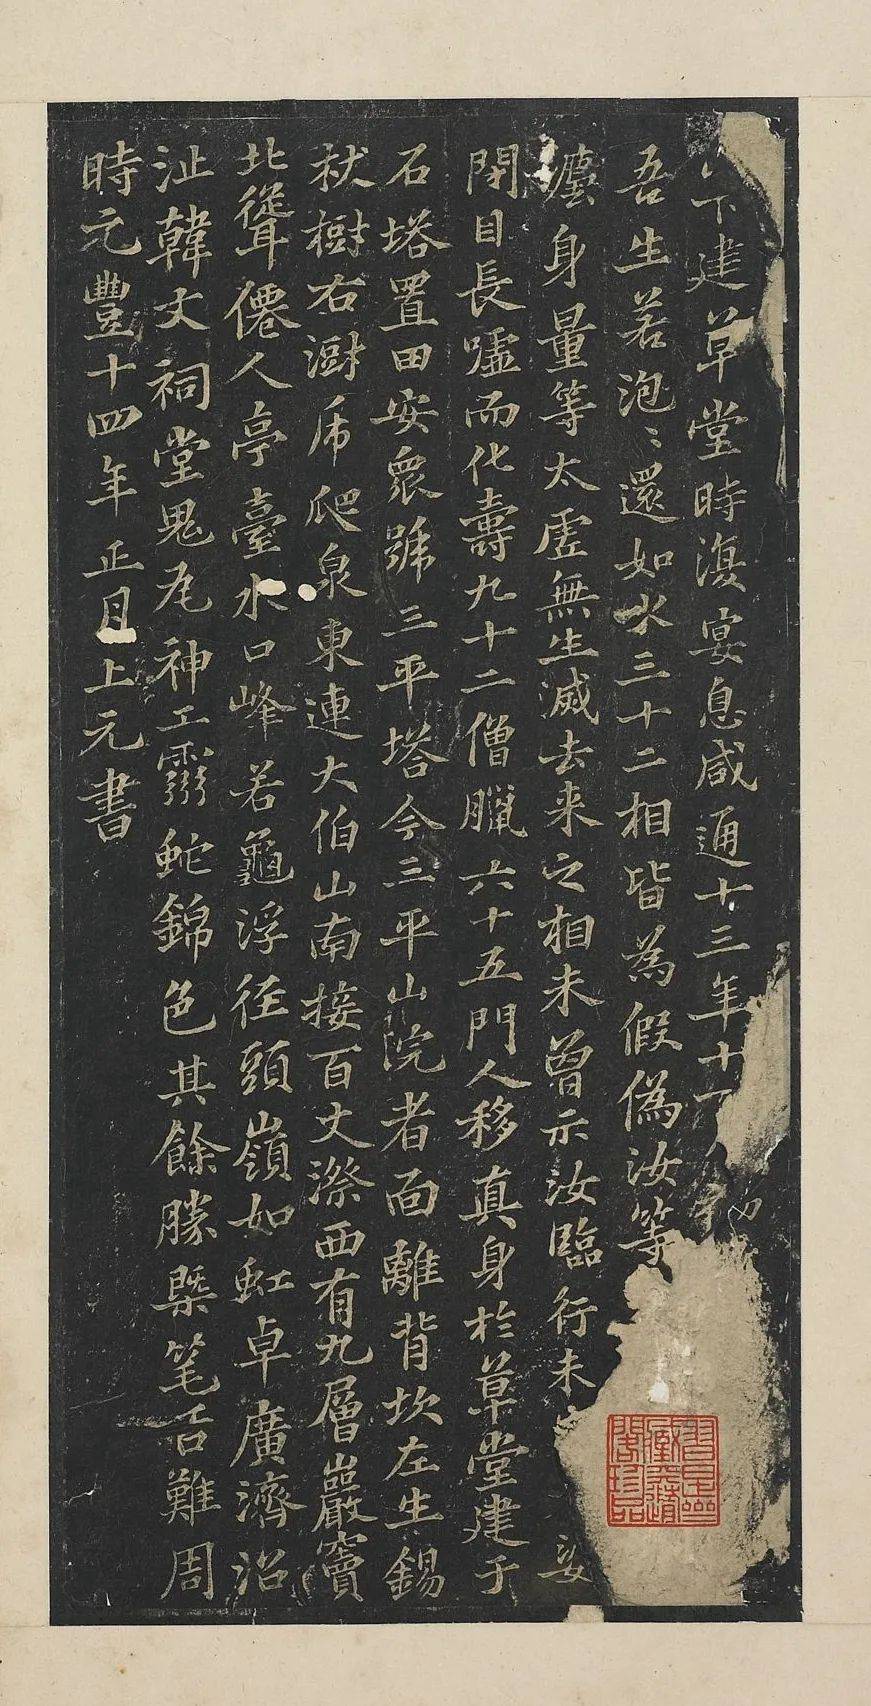 下建草堂時復宴息咸通十三年十
吾生若泡〻還如水三十二相皆為假偽汝等
身量等太虛無生滅去来之相未曾示汝臨行未妄
閉目長噓而化壽九十二僧臘六十五門人移真身於草堂建于
石塔置田安眾號三平塔今三平山院者面離背坎左生錫
杖樹右澍虎爬泉東連大伯山南接百丈漈西有九層巖竇
北聳僊人亭臺水口峰若龜浮徑頭嶺如虹卓廣濟沿
沚韓文祠堂鬼尤神工蛇錦色其餘勝槩笔舌難周
時元豐十四年正月上元書